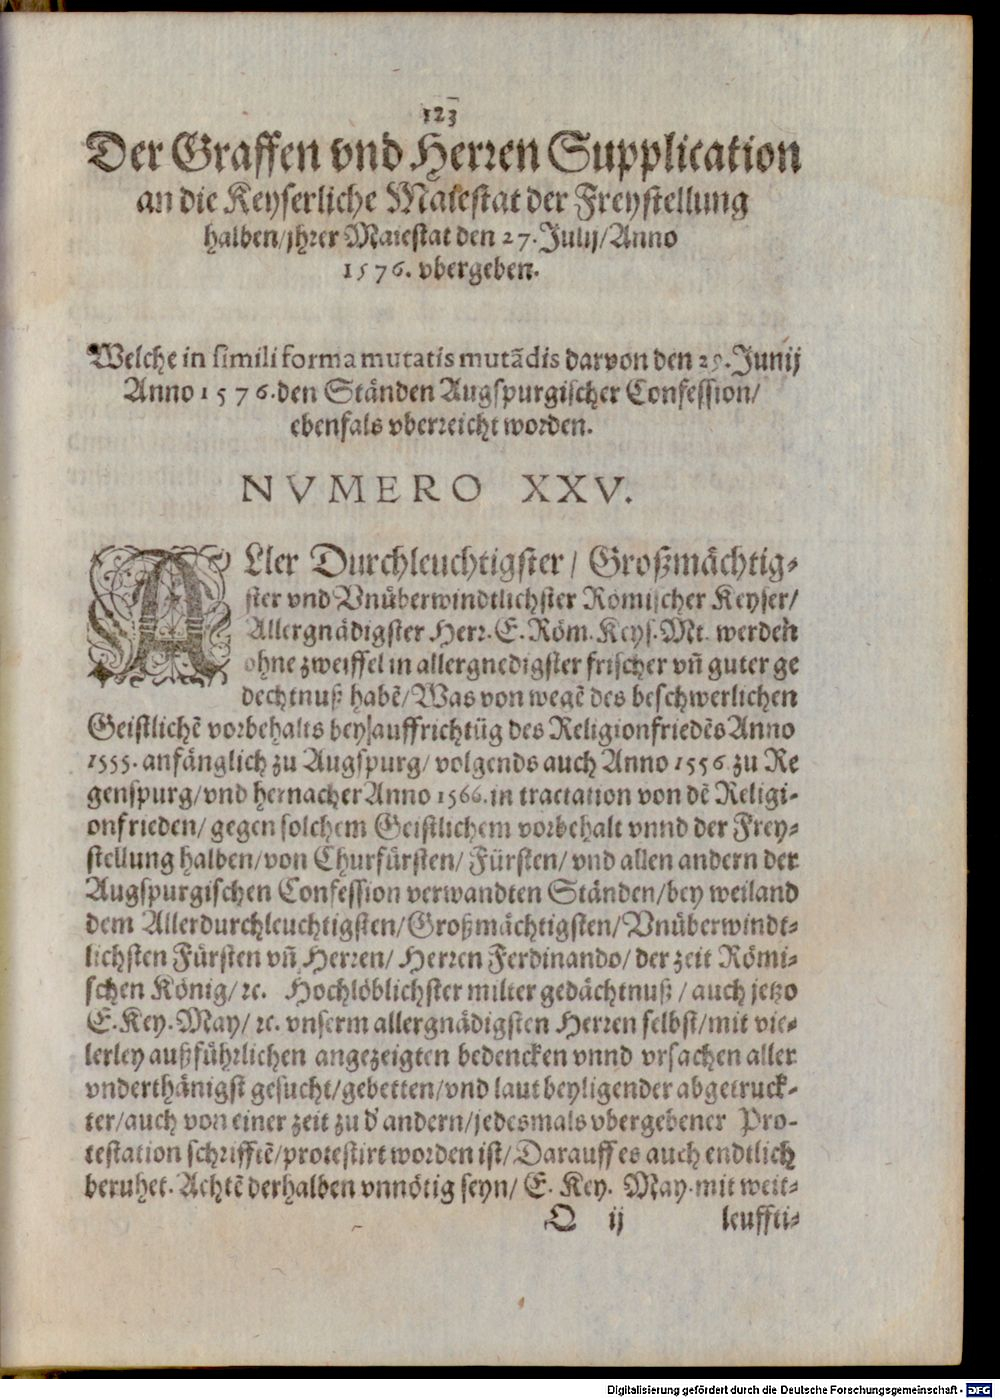 123
Der Graffen vnd Herren Supplication
an die Keyserliche Maiestat der Freystellung
halben/jhrer Maiestat den 27. Julij/Anno
1576. vbergeben.
Welche in simili forma mutatis mutãdis darvon den 29. Junij
Anno 1576. den Ständen Augspurgischer Confession/
ebenfals vberreicht worden.
NVMERO XXV.
ALler Durchleuchtigster / Großmächtig-
ster vnd Vnüberwindtlichster Römischer Keyser/
Allergnädigster Herr. E. Röm. Keys. Mt. werden
ohne zweiffel in allergnedigster frischer vñ guter ge
dechtnuß habẽ/Was von wegẽ des beschwerlichen
Geistlichẽ vorbehalts bey auffrichtũg des Religionfriedẽs Anno
1555. anfänglich zu Augspurg/ volgends auch Anno 1556 zu Re
genspurg/vnd hernacher Anno 1566. in tractation von dẽ Religi-
onfrieden/ gegen solchem Geistlichem vorbehalt vnnd der Frey-
stellung halben/von Churfürsten/ Fürsten/ vnd allen andern der
Augspurgischen Confession verwandten Ständen/bey weiland
dem Allerdurchleuchtigsten/Großmächtigsten/Vnüberwindt-
lichsten Fürsten vñ Herren/ Herren Ferdinando/ der zeit Römi-
schen König/ ꝛc. Hochlöblichster milter gedächtnuß / auch jetzo
E. Key. May/ ꝛc. vnserm allergnädigsten Herren selbst/mit vie-
lerley außführlichen angezeigten bedencken vnnd vrsachen aller
vnderthänigst gesucht/gebetten/vnd laut beyligender abgetruck-
ter/auch von einer zeit zu d' andern/jedesmals vbergebener Pro-
testation schrifftẽ/protestirt worden ist/Darauff es auch endtlich
beruhet. Achtẽ derhalben vnnötig seyn/ E. Key. May. mit weit-
Q ij leuffti-
Digitalisierung gefördert durch die Deutsche Forschungsgemeinschaft - DFG